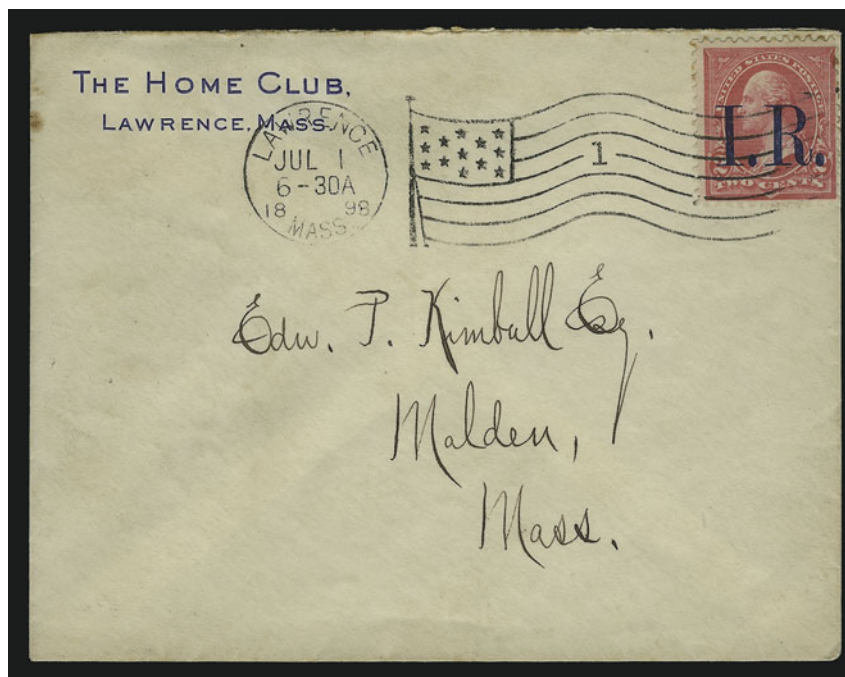 THE HOME CLUB,
LAWRENCE, MASS.
LAWRENCE
JUL 1
6-30A
18 98
MASS.
1
UNITED STATES POSTAGE
I.R.
TWO CENTS
Edw. P. Kimball Esq.
Malden,
Mass.